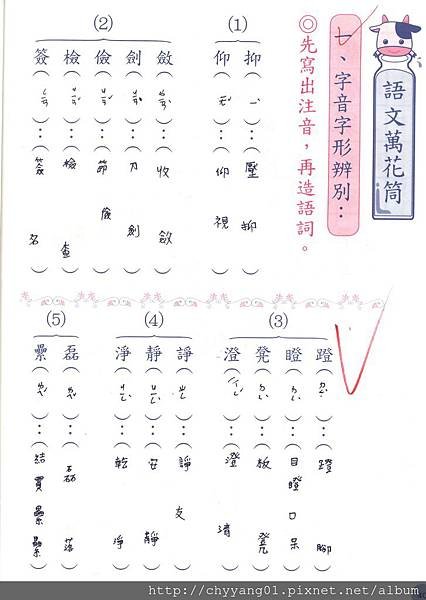 語文萬花筒
一、字音字形辨別：
◎先寫出注音，再造語詞。
(1)
抑（ㄧˋ）：（壓抑）
仰（ㄧㄤˇ）：（仰視）
(2)
斂（ㄌㄧㄢˋ）：（收斂）
劍（ㄐㄧㄢˋ）：（刀劍）
儉（ㄐㄧㄢˇ）：（節儉）
檢（ㄐㄧㄢˇ）：（檢查）
簽（ㄑㄧㄢ）：（簽名）
(3)
蹬（ㄉㄥ）：（蹬腳）
瞪（ㄉㄥˋ）：（目瞪口呆）
凳（ㄉㄥˋ）：（板凳）
澄（ㄔㄥˊ）：（澄清）
(4)
諍（ㄓㄥ）：（諍友）
靜（ㄐㄧㄥˋ）：（安靜）
淨（ㄐㄧㄥˋ）：（乾淨）
(5)
磊（ㄌㄟˇ）：（磊落）
纍（ㄌㄟˊ）：（結實纍纍）
http://chyyang01.pixnet.net/album